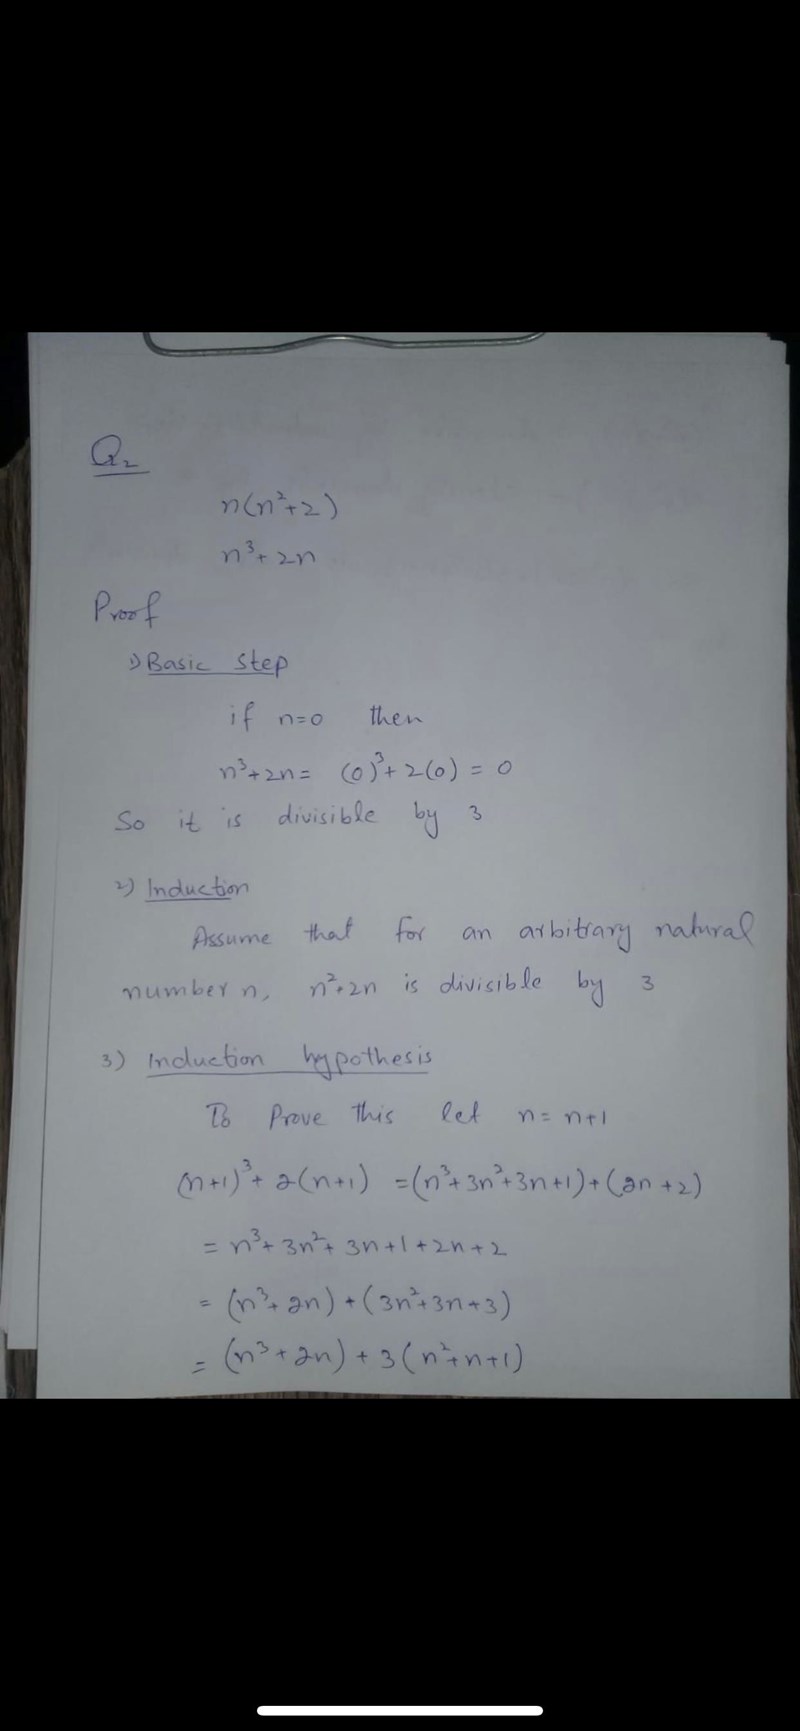 Q2
n(n²+2)
n³+2n
Proof
1) Basic step
if n=0 then
n³+2n= (0)³+2(0) = 0
So it is divisible by 3
2) Induction
Assume that for an arbitrary natural
number n, n²+2n is divisible by 3
3) Induction hypothesis
To Prove this let n= n+1
(n+1)³+ 2(n+1) =(n³+3n²+3n+1)+(2n+2)
= n³+3n²+ 3n+1+2n+2
= (n³+2n)+(3n²+3n+3)
= (n³+2n)+3(n²+n+1)